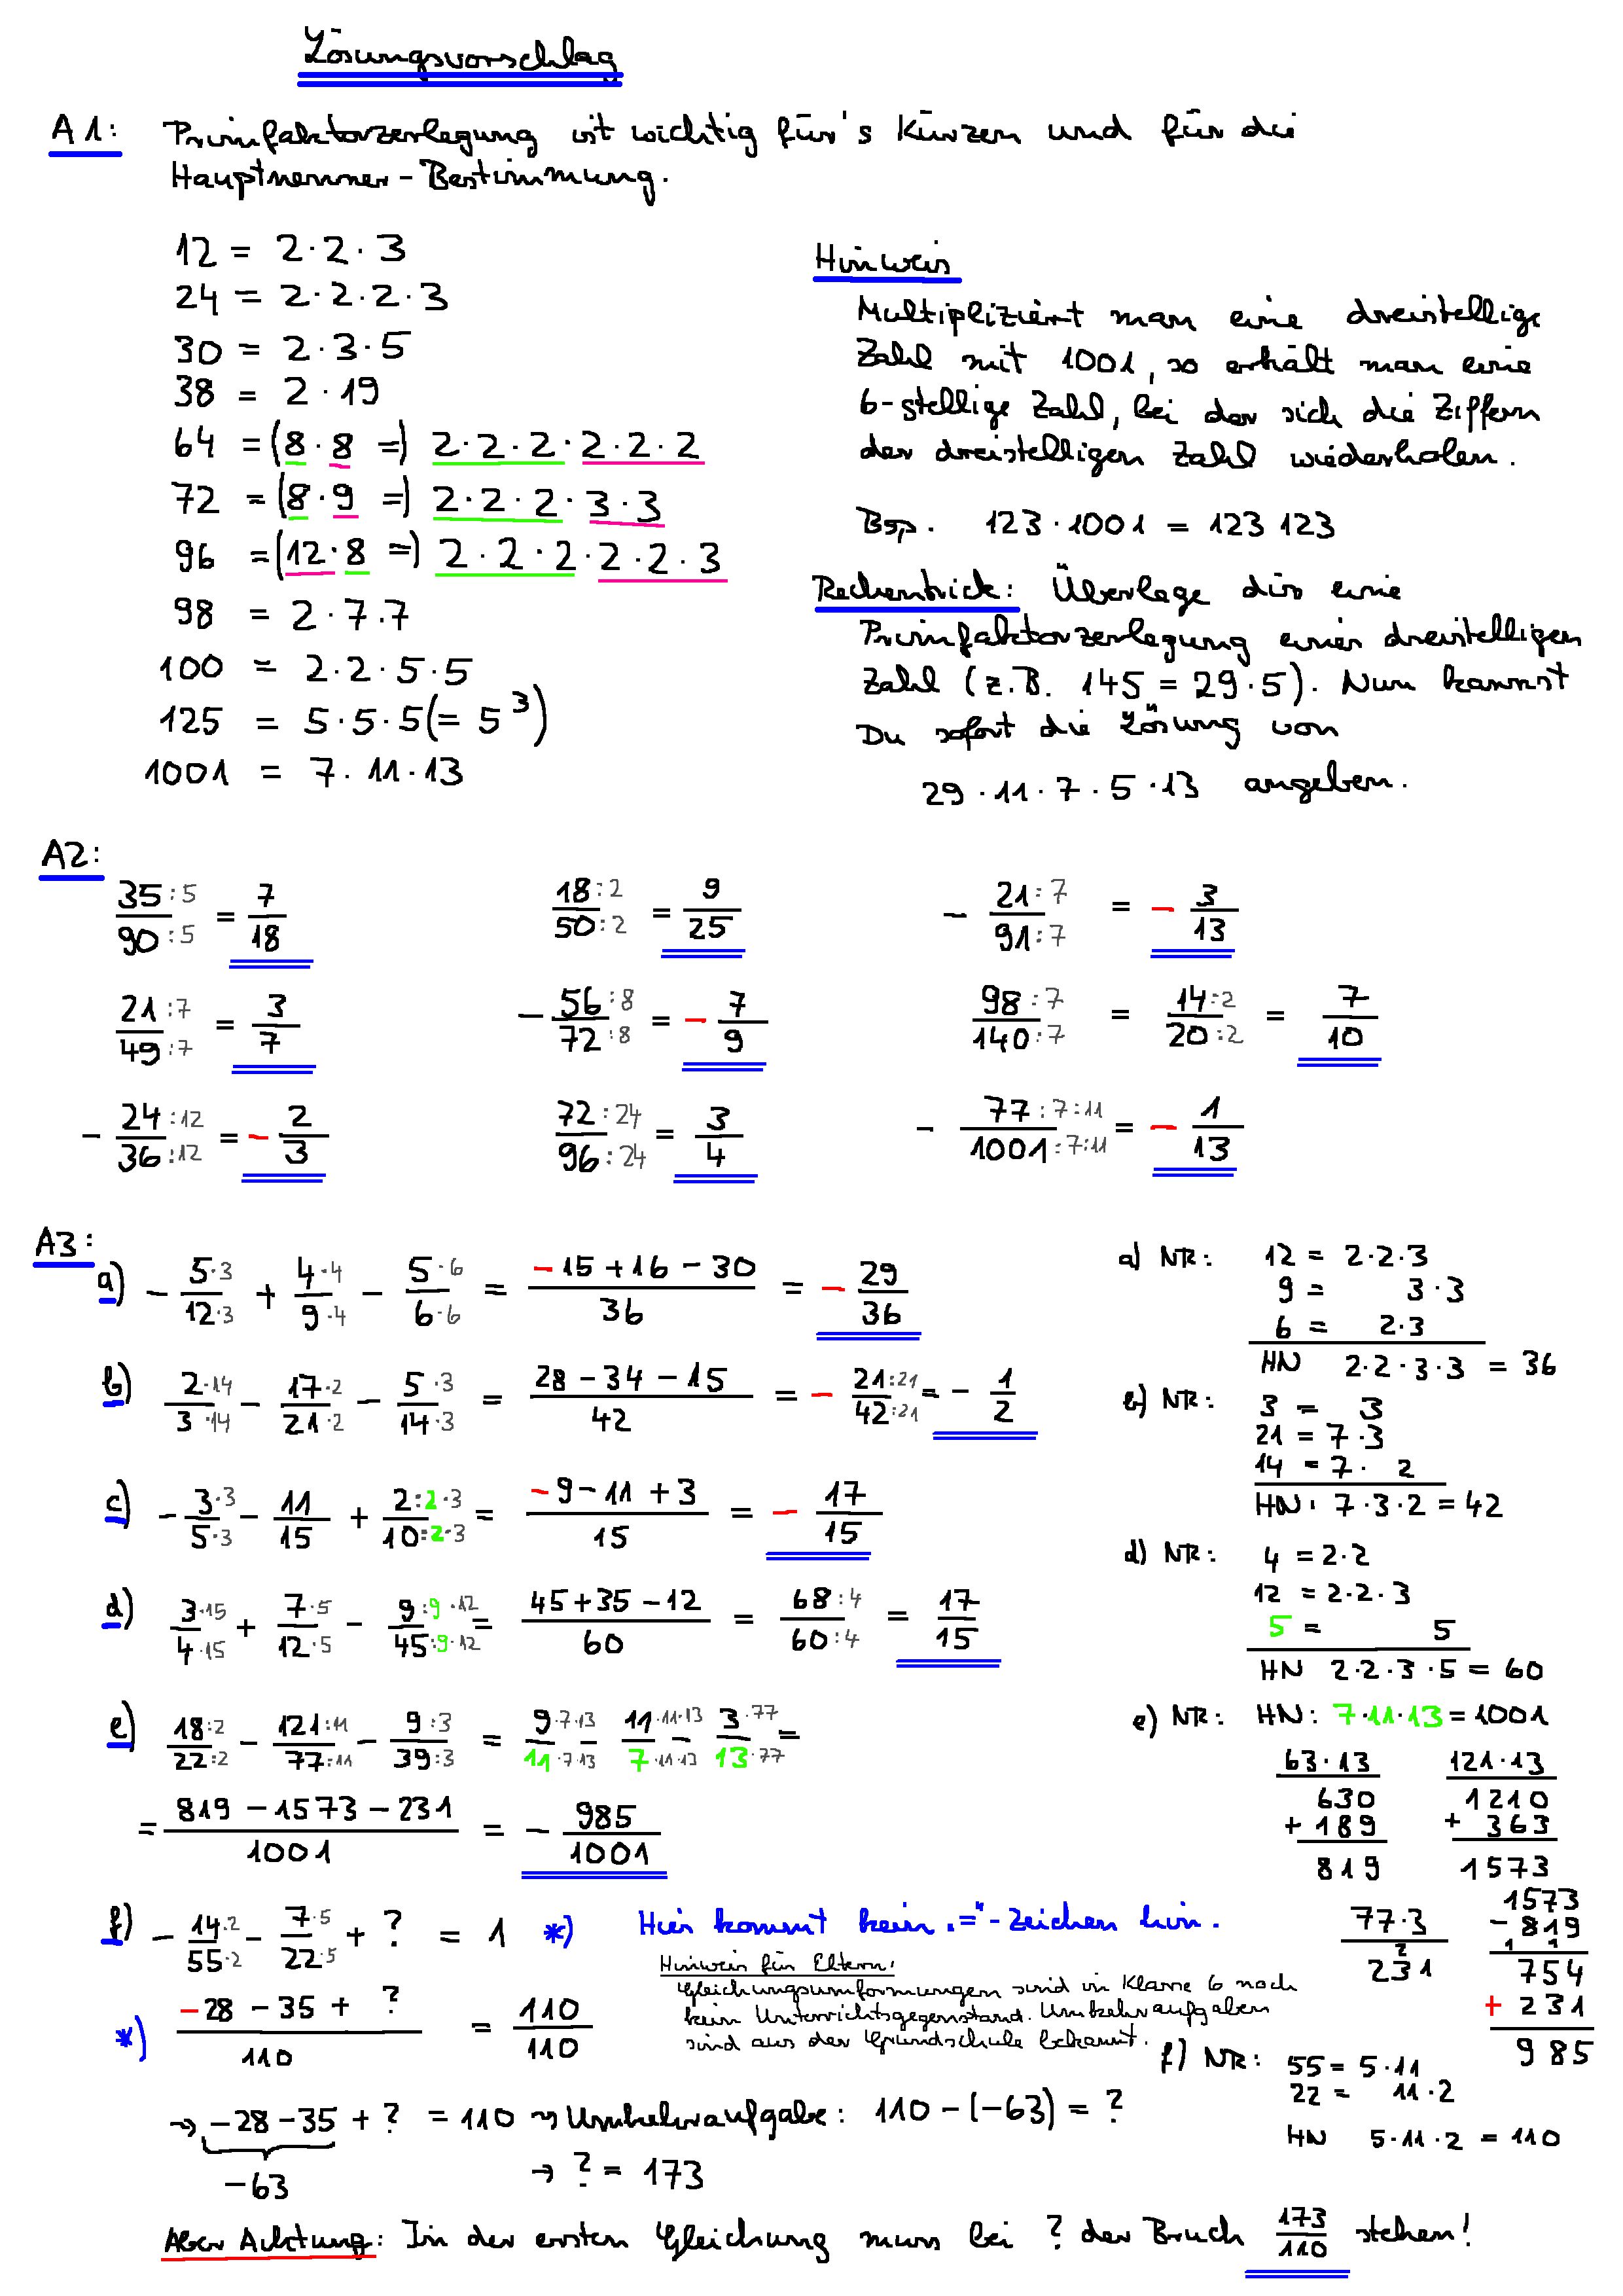 Lösungsvorschlag
A1: Primfaktorzerlegung ist wichtig für's Kürzen und für die
Hauptnenner-Bestimmung.
12 = 2·2·3
24 = 2·2·2·3
30 = 2·3·5
38 = 2·19
64 = (8·8 =) 2·2·2·2·2·2
72 = (8·9 =) 2·2·2·3·3
96 = (12·8 =) 2·2·2·2·2·3
98 = 2·7·7
100 = 2·2·5·5
125 = 5·5·5 (= 5³)
1001 = 7·11·13
Hinweis
Multipliziert man eine dreistellige
Zahl mit 1001, so erhält man eine
6-stellige Zahl, bei der sich die Ziffern
der dreistelligen Zahl wiederholen.
Bsp. 123·1001 = 123 123
Rechentrick: Überlege dir eine
Primfaktorzerlegung einer dreistelligen
Zahl (z.B. 145 = 29·5). Nun kannst
Du sofort die Lösung von
29·11·7·5·13 angeben.
A2:
35:5/90:5 = 7/18
18:2/50:2 = 9/25
- 21:7/91:7 = - 3/13
21:7/49:7 = 3/7
- 56:8/72:8 = - 7/9
98:7/140:7 = 14:2/20:2 = 7/10
- 24:12/36:12 = - 2/3
72:24/96:24 = 3/4
- 77:7:11/1001:7:11 = - 1/13
A3:
a) - 5·3/12·3 + 4·4/9·4 - 5·6/6·6 = -15+16-30/36 = - 29/36
b) 2·14/3·14 - 17·2/21·2 - 5·3/14·3 = 28-34-15/42 = - 21:21/42:21 = - 1/2
c) - 3·3/5·3 - 11/15 + 2:2·3/10:2·3 = -9-11+3/15 = - 17/15
d) 3·15/4·15 + 7·5/12·5 - 9:9·12/45:9·12 = 45+35-12/60 = 68:4/60:4 = 17/15
e) 18:2/22:2 - 121:11/77:11 - 9:3/39:3 = 9·7·13/11·7·13 - 11·11·13/7·11·13 - 3·77/13·77 =
= 819-1573-231/1001 = - 985/1001
f) - 14·2/55·2 - 7·5/22·5 + ? = 1 *) Hier kommt kein „="-Zeichen hin.
Hinweis für Eltern:
Gleichungsumformungen sind in Klasse 6 noch
kein Unterrichtsgegenstand. Umkehraufgaben
sind aus der Grundschule bekannt.
*) -28-35+ ?/110 = 110/110
→ -28-35 + ? = 110 → Umkehraufgabe: 110-(-63) = ?
-63
→ ? = 173
Aber Achtung: In der ersten Gleichung muss bei ? der Bruch 173/110 stehen!
a) NR: 12 = 2·2·3
9 = 3·3
6 = 2·3
HN 2·2·3·3 = 36
b) NR: 3 = 3
21 = 7·3
14 = 7· 2
HN: 7·3·2 = 42
d) NR: 4 = 2·2
12 = 2·2·3
5 = 5
HN 2·2·3·5 = 60
e) NR: HN: 7·11·13 = 1001
63·13
630
+ 189
819
121·13
1210
+ 363
1573
77·3
2
231
1573
- 819
1 1
754
+ 231
985
f) NR: 55 = 5·11
22 = 11·2
HN 5·11·2 = 110